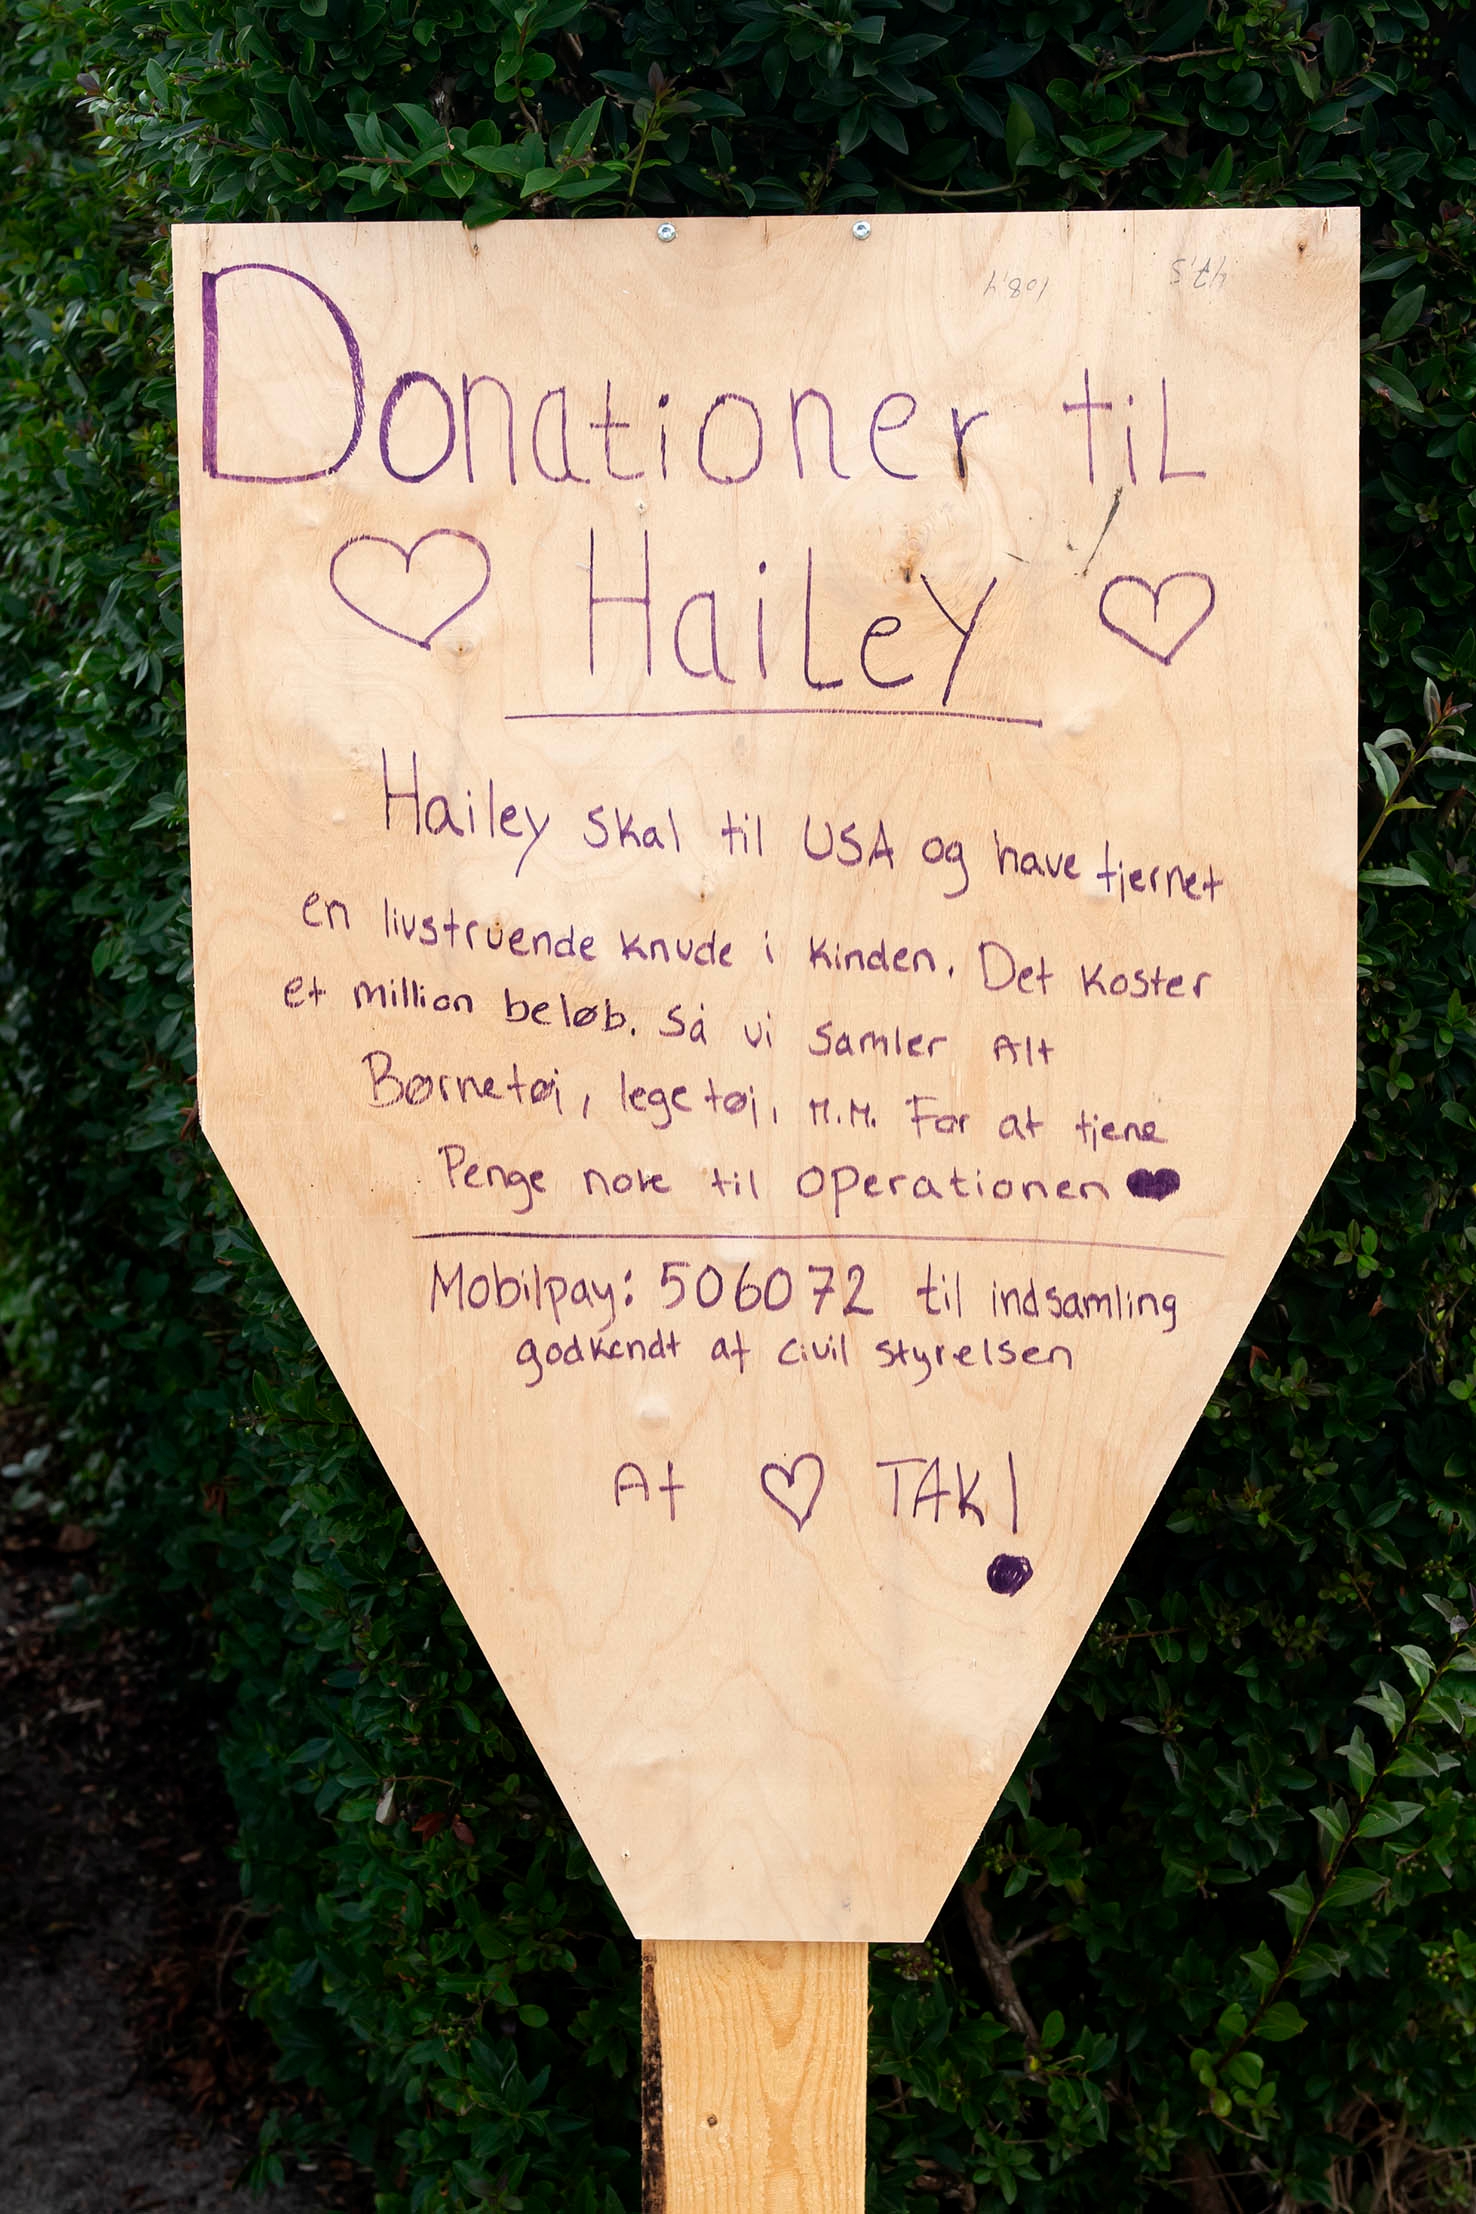 108,4 47,5
Donationer til
♡ Hailey ♡
Hailey skal til USA og have fjernet
en livstruende knude i kinden. Det koster
et million beløb. Så vi samler Alt
Børnetøj, legetøj, M.M. For at tjene
Penge nok til operationen ♥
Mobilpay: 506072 til indsamling
godkendt af civil styrelsen
Af ♡ TAK!